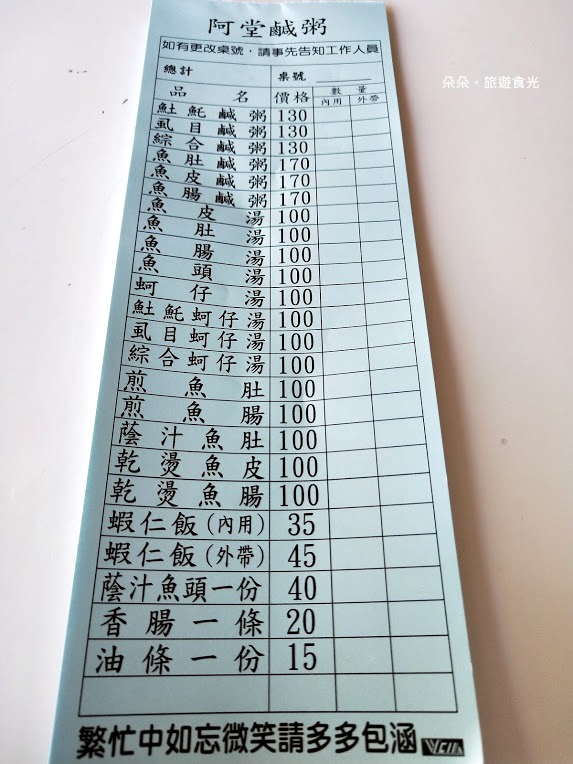 阿堂鹹粥
如有更改桌號，請事先告知工作人員
總計 桌號
品名 價格 數量
內用 外帶
𩵚魠鹹粥 130
虱目鹹粥 130
綜合鹹粥 130
魚肚鹹粥 170
魚皮鹹粥 170
魚腸鹹粥 170
魚皮湯 100
魚肚湯 100
魚腸湯 100
魚頭湯 100
蚵仔湯 100
𩵚魠蚵仔湯 100
虱目蚵仔湯 100
綜合蚵仔湯 100
煎魚肚 100
煎魚腸 100
蔭汁魚肚 100
乾燙魚皮 100
乾燙魚腸 100
蝦仁飯(內用) 35
蝦仁飯(外帶) 45
蔭汁魚頭一份 40
香腸一條 20
油條一份 15
繁忙中如忘微笑請多多包涵
朵朵。旅遊食光